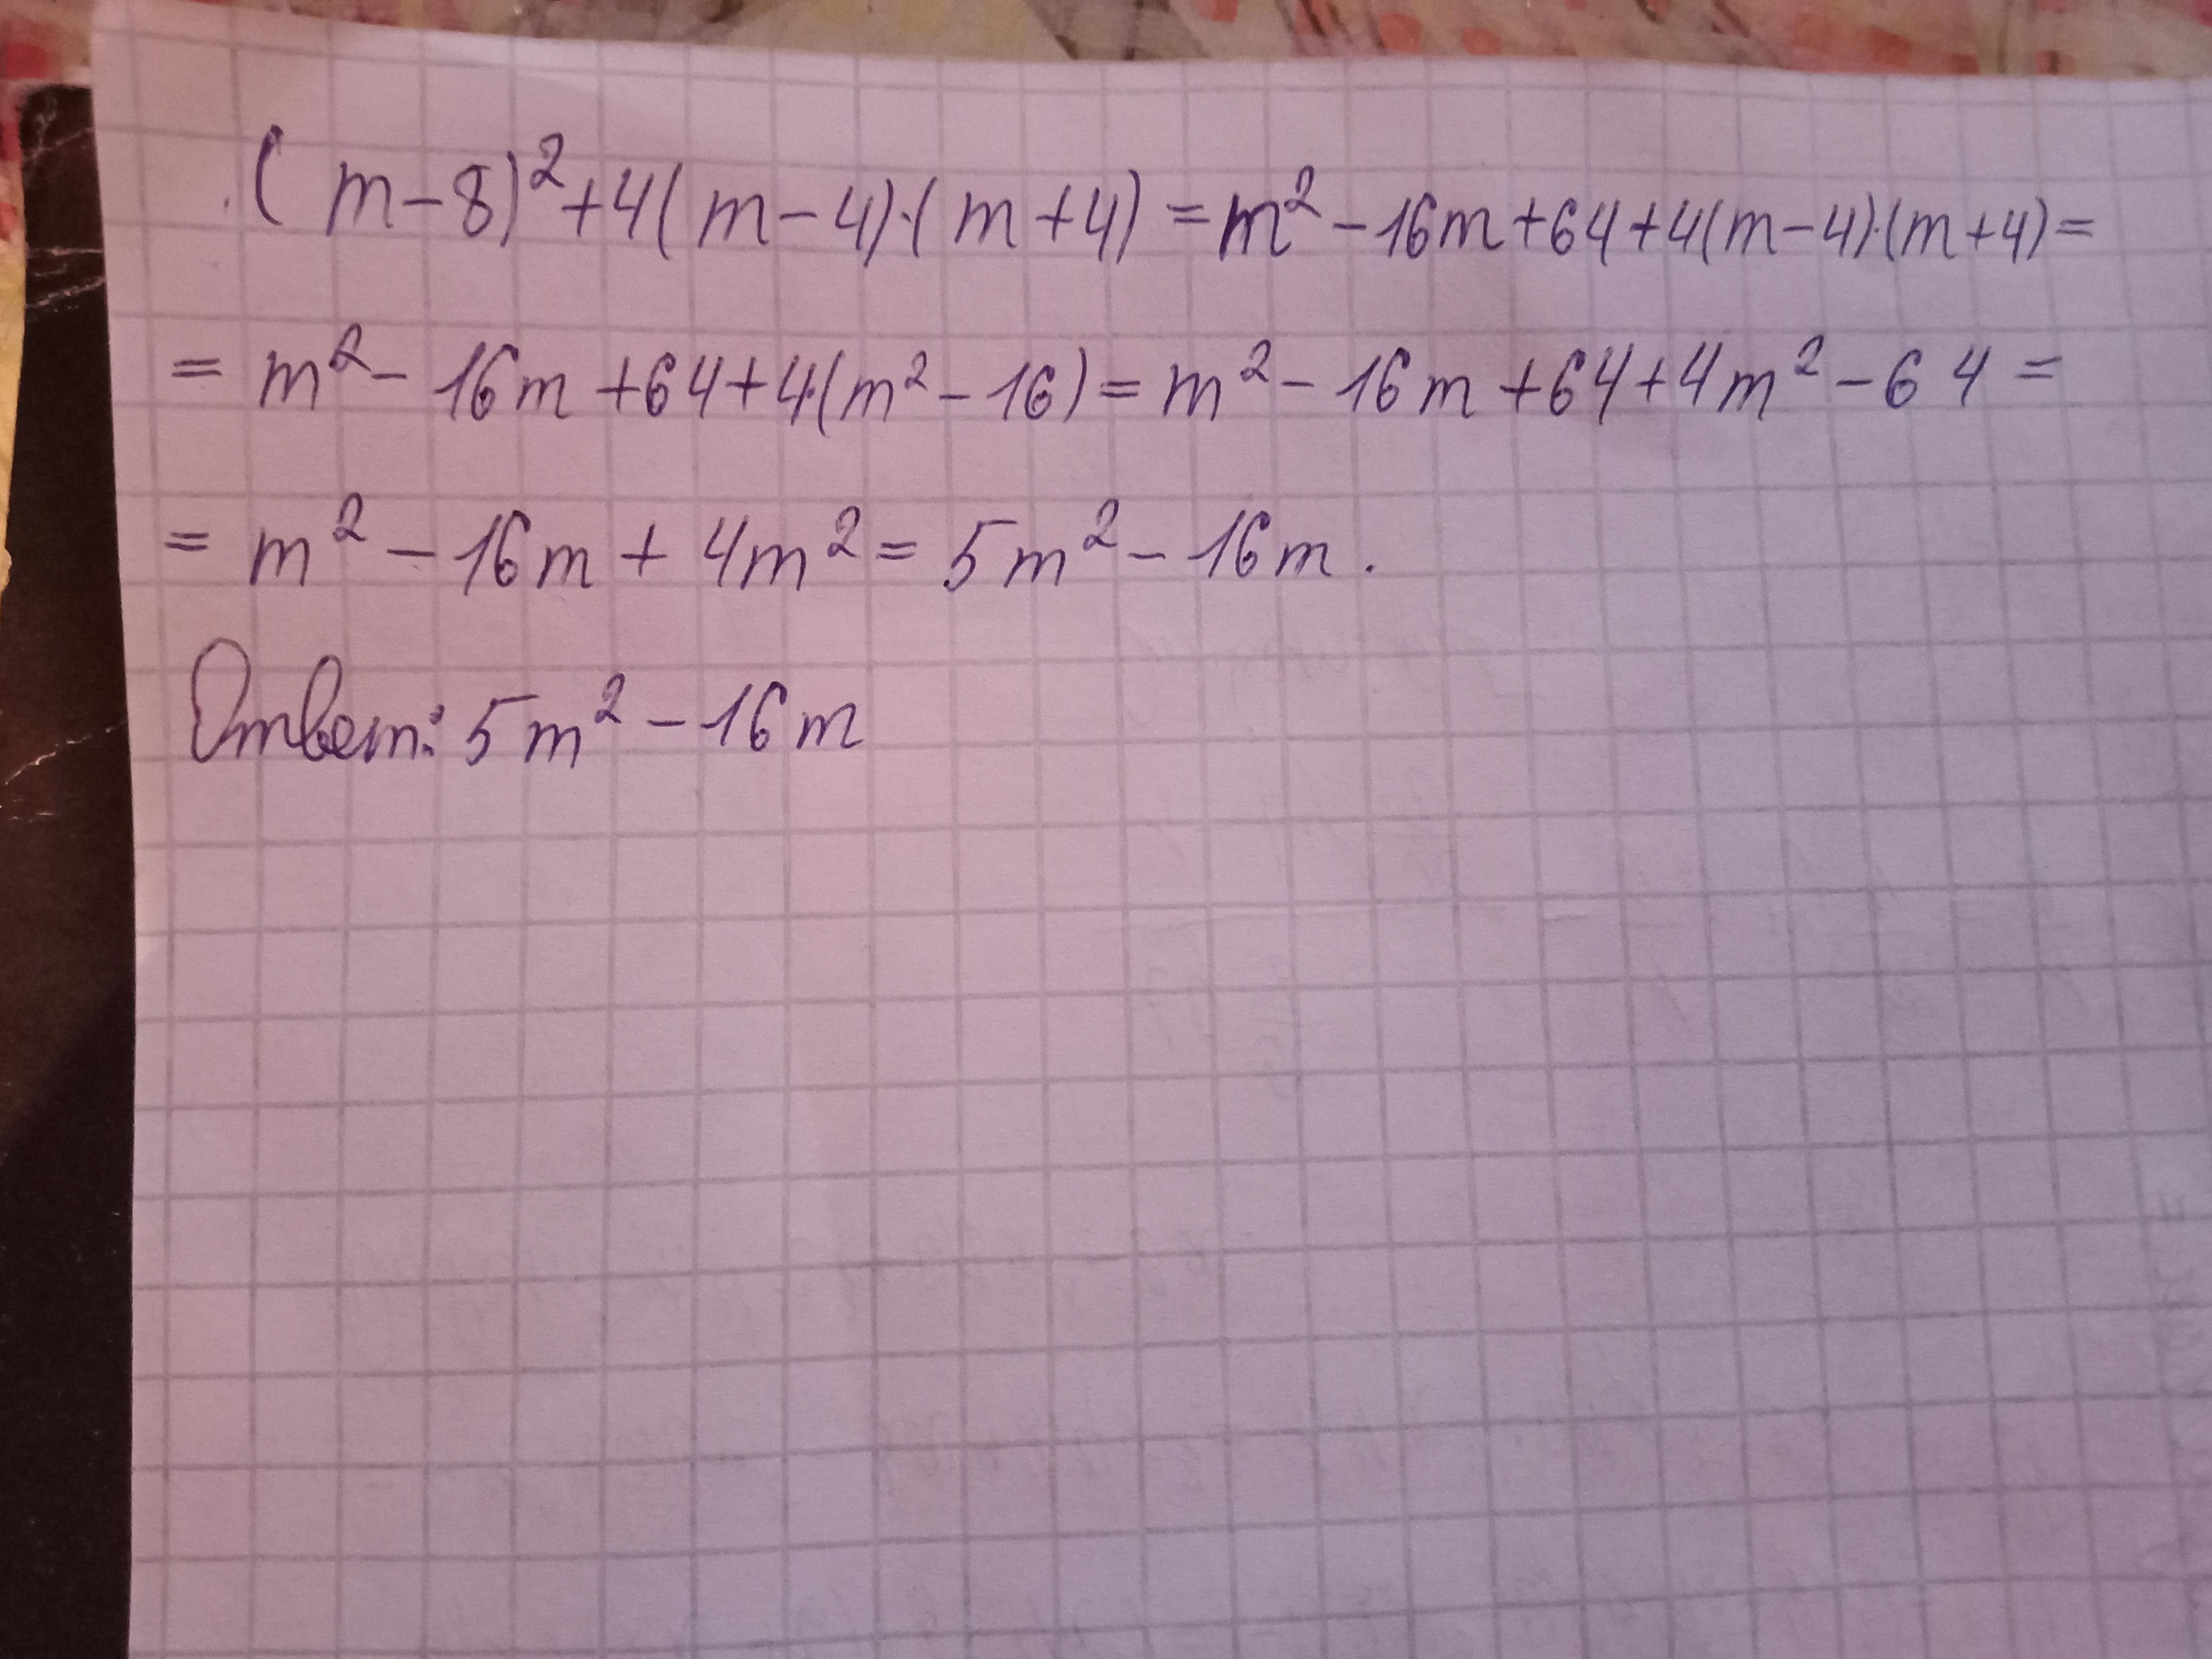 (m-8)²+4(m-4)·(m+4)=m²-16m+64+4(m-4)·(m+4)=
=m²-16m+64+4·(m²-16)=m²-16m+64+4m²-64=
=m²-16m+4m²=5m²-16m.
Ответ: 5m²-16m